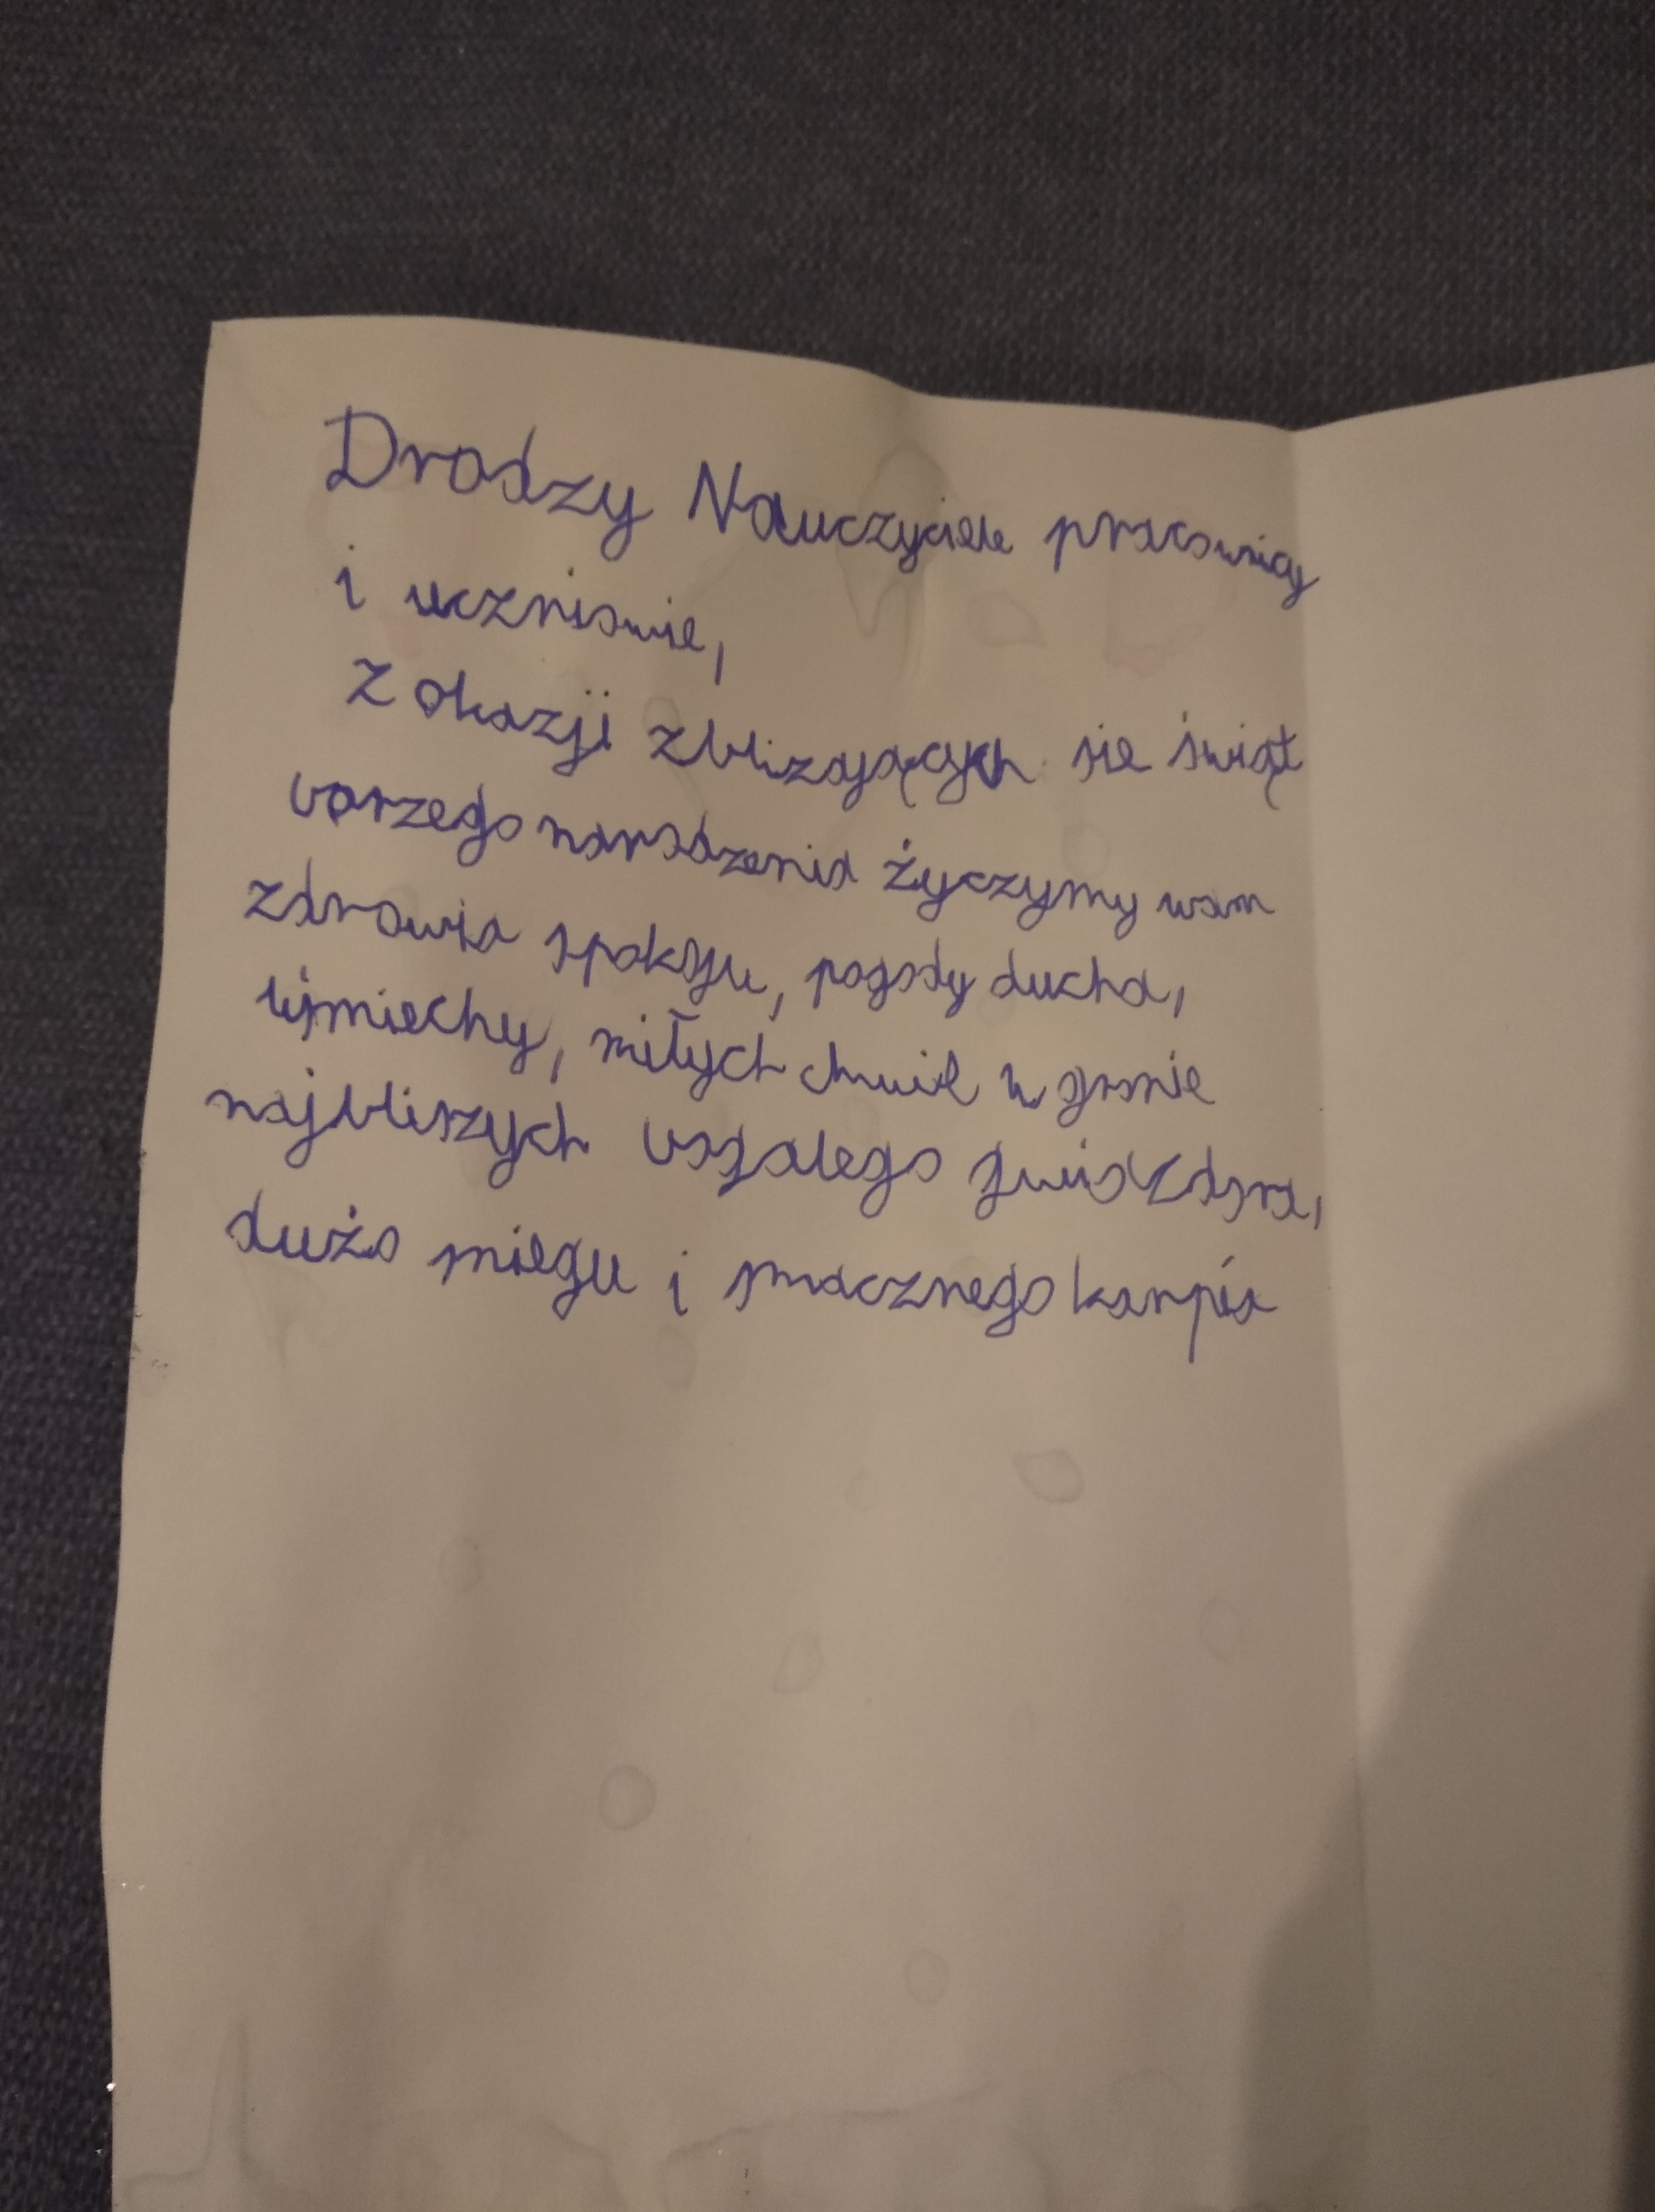 Drodzy Nauczyciele pracownicy
i uczniowie,
Z okazji zblizających sie świąt
borzego narodzenia życzymy wam
zdrowia spokoju, pogody ducha,
uśmiechy, miłych chwil w gronie
najbliszych bogatego gwiazdora,
dużo sniegu i smacznego karpia